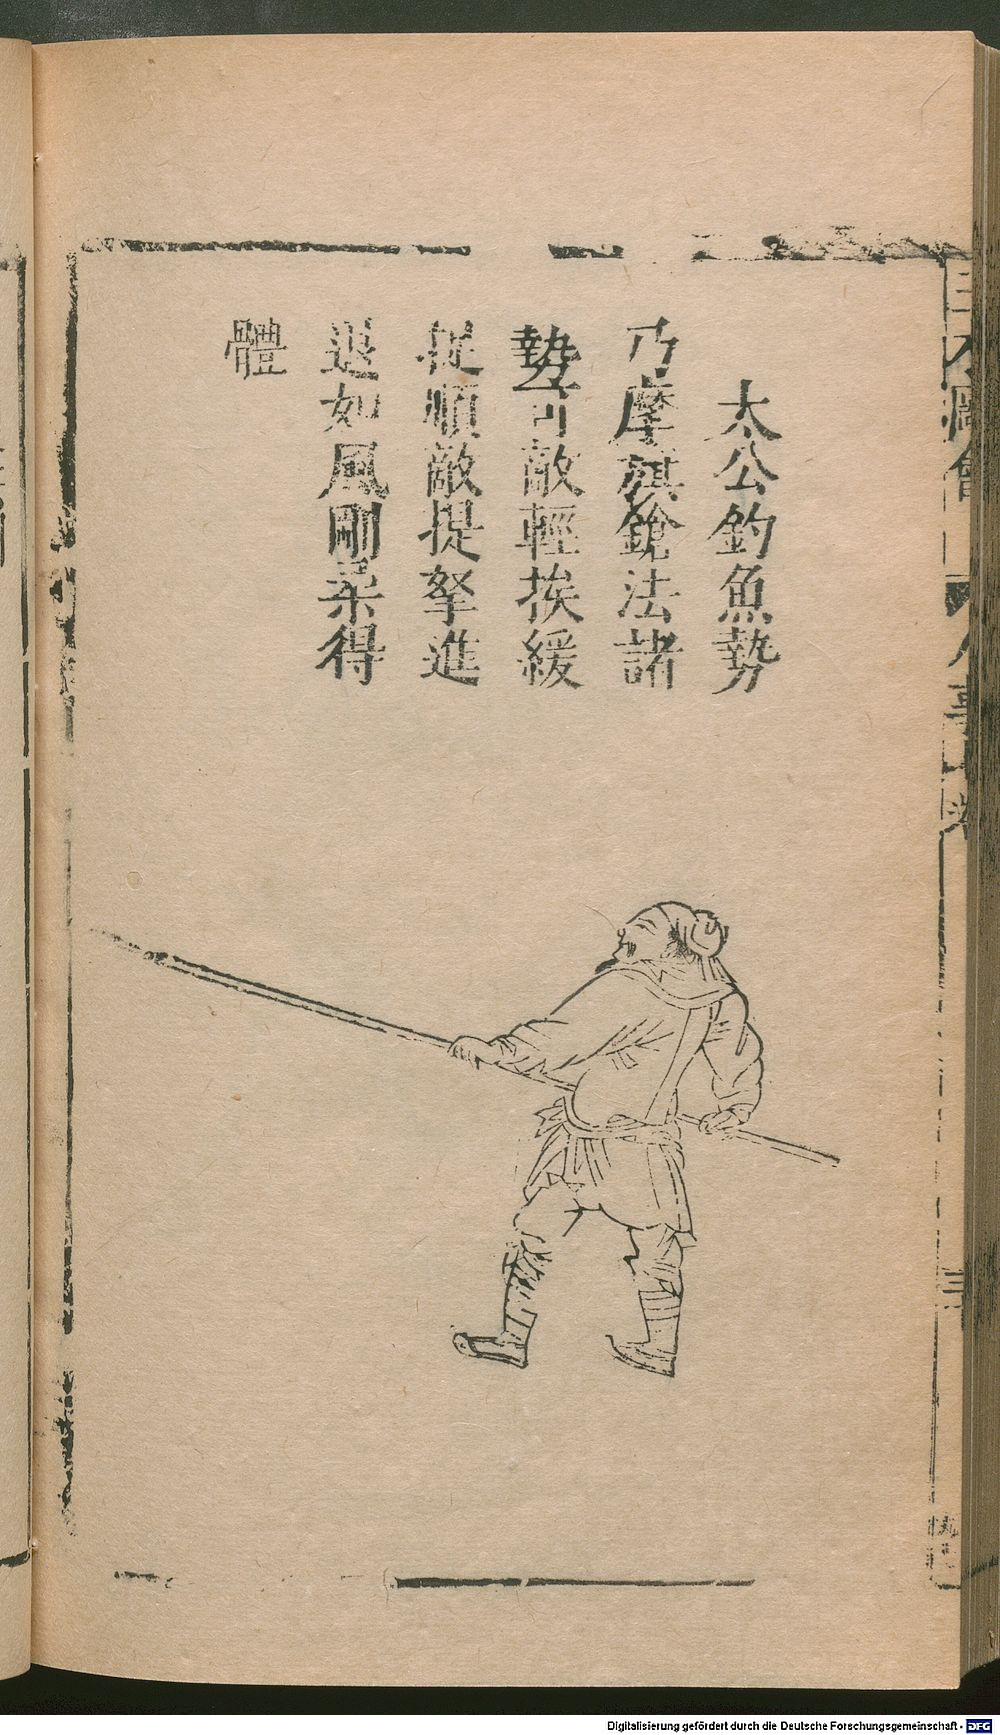 太公釣魚勢
乃摩旗鎗法諸
勢可敵輕挨緩
捉順敵提拏進
退如風剛柔得
體
Digitalisierung gefördert durch die Deutsche Forschungsgemeinschaft - DFG